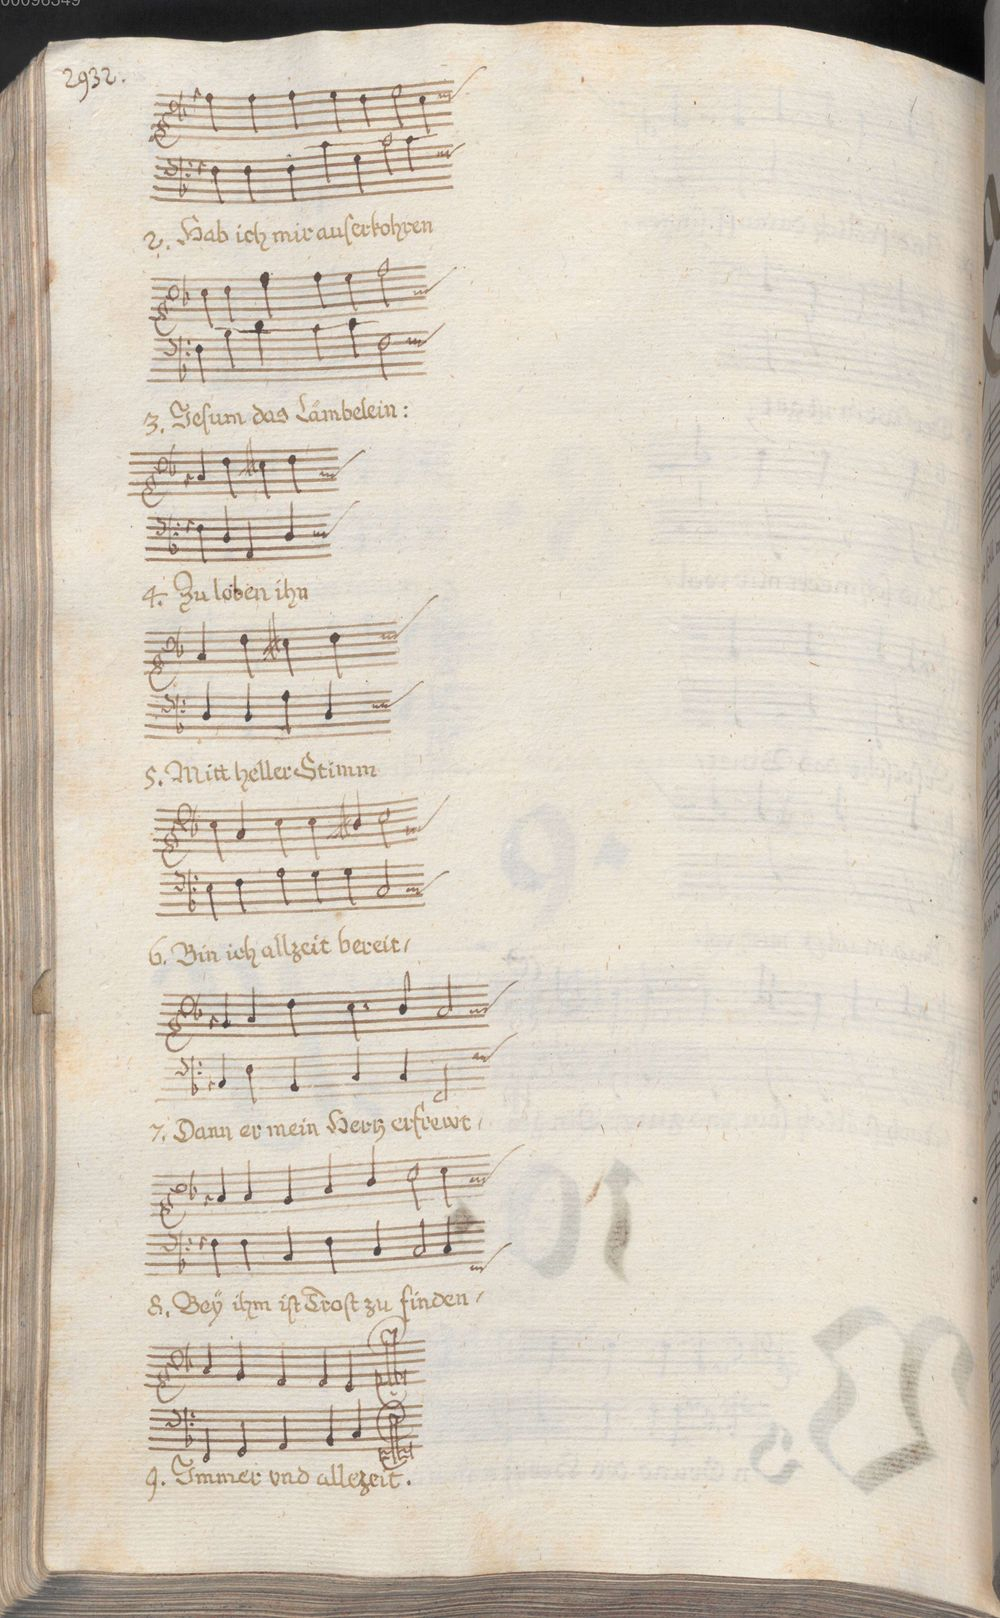 2932.
2. Hab ich mir auserkohren
3. Jesum das Lämbelein:
4. Zu loben ihn
5. Mitt heller Stimm
6. Bin ich allzeit bereit/
7. Dann er mein Hertz erfrewt/
8. Beÿ ihm ist Trost zu finden/
9. Immer vnd allezeit.